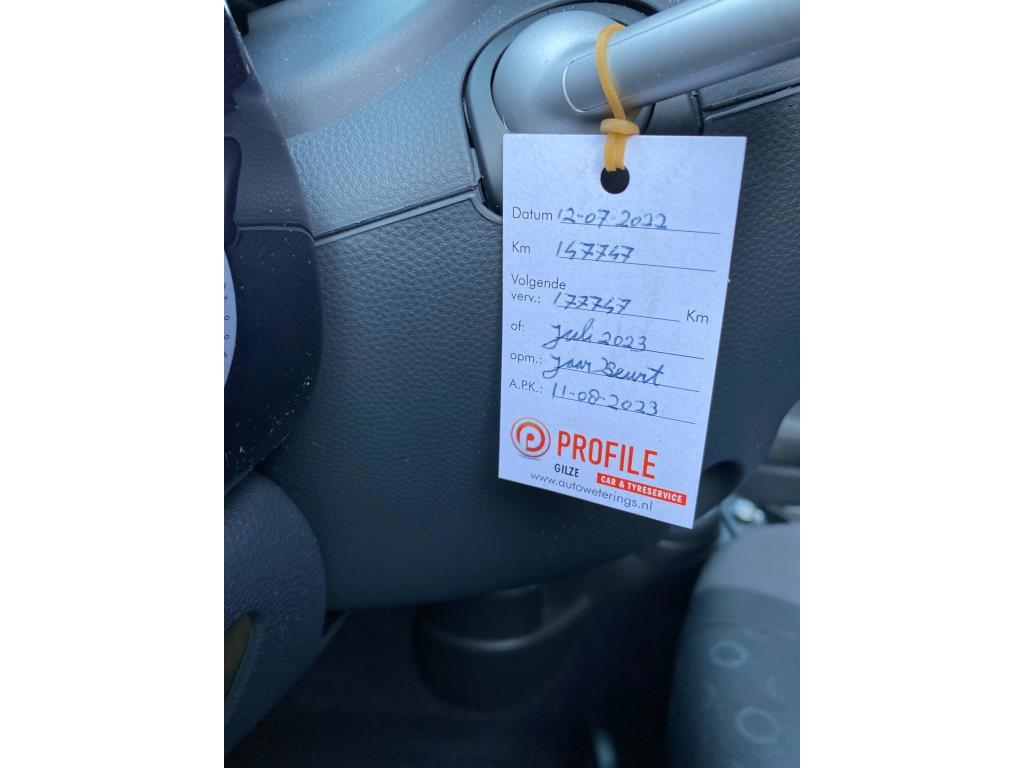 Datum 12-07-2022
Km 147747
Volgende
verv.: 177747 Km
of: Juli 2023
opm.: Jaar Beurt
A.P.K.: 11-08-2023
PROFILE
GILZE CAR & TYRESERVICE
www.autoweterings.nl